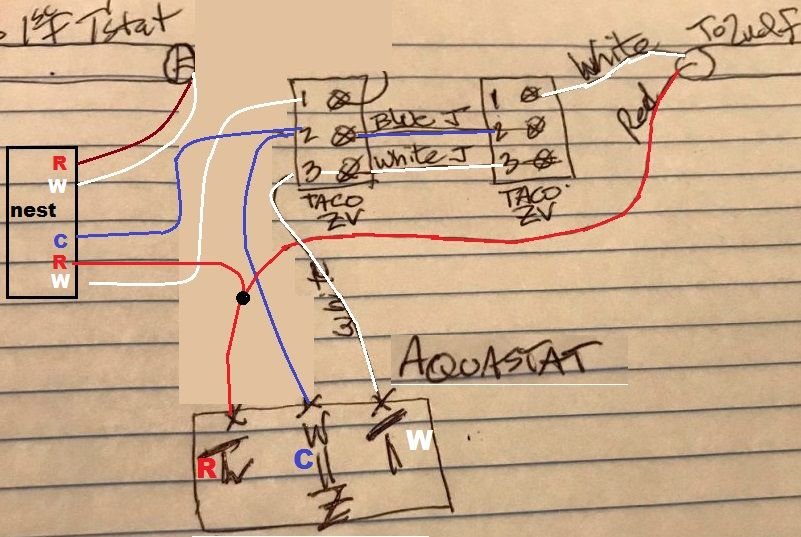 1st Tstat
To 2nd F
White
Red
R
W
nest
C
R
W
1
2
3
TACO
ZV
Blue J
White J
1
2
3
TACO
ZV
AQUASTAT
R
TV
C
W
Z
W